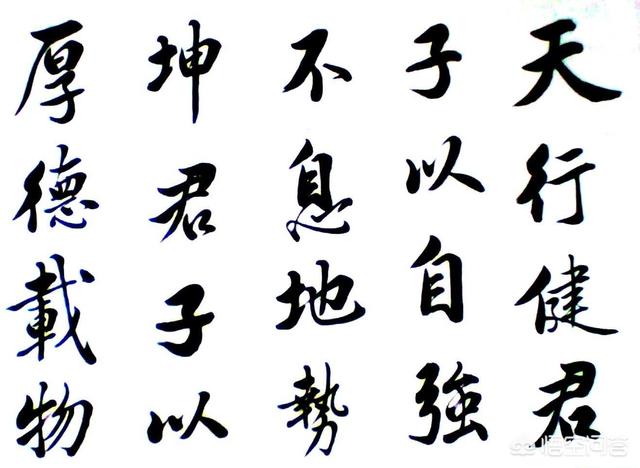 天行健君
子以自強
不息地勢
坤君子以
厚德載物
悟空问答